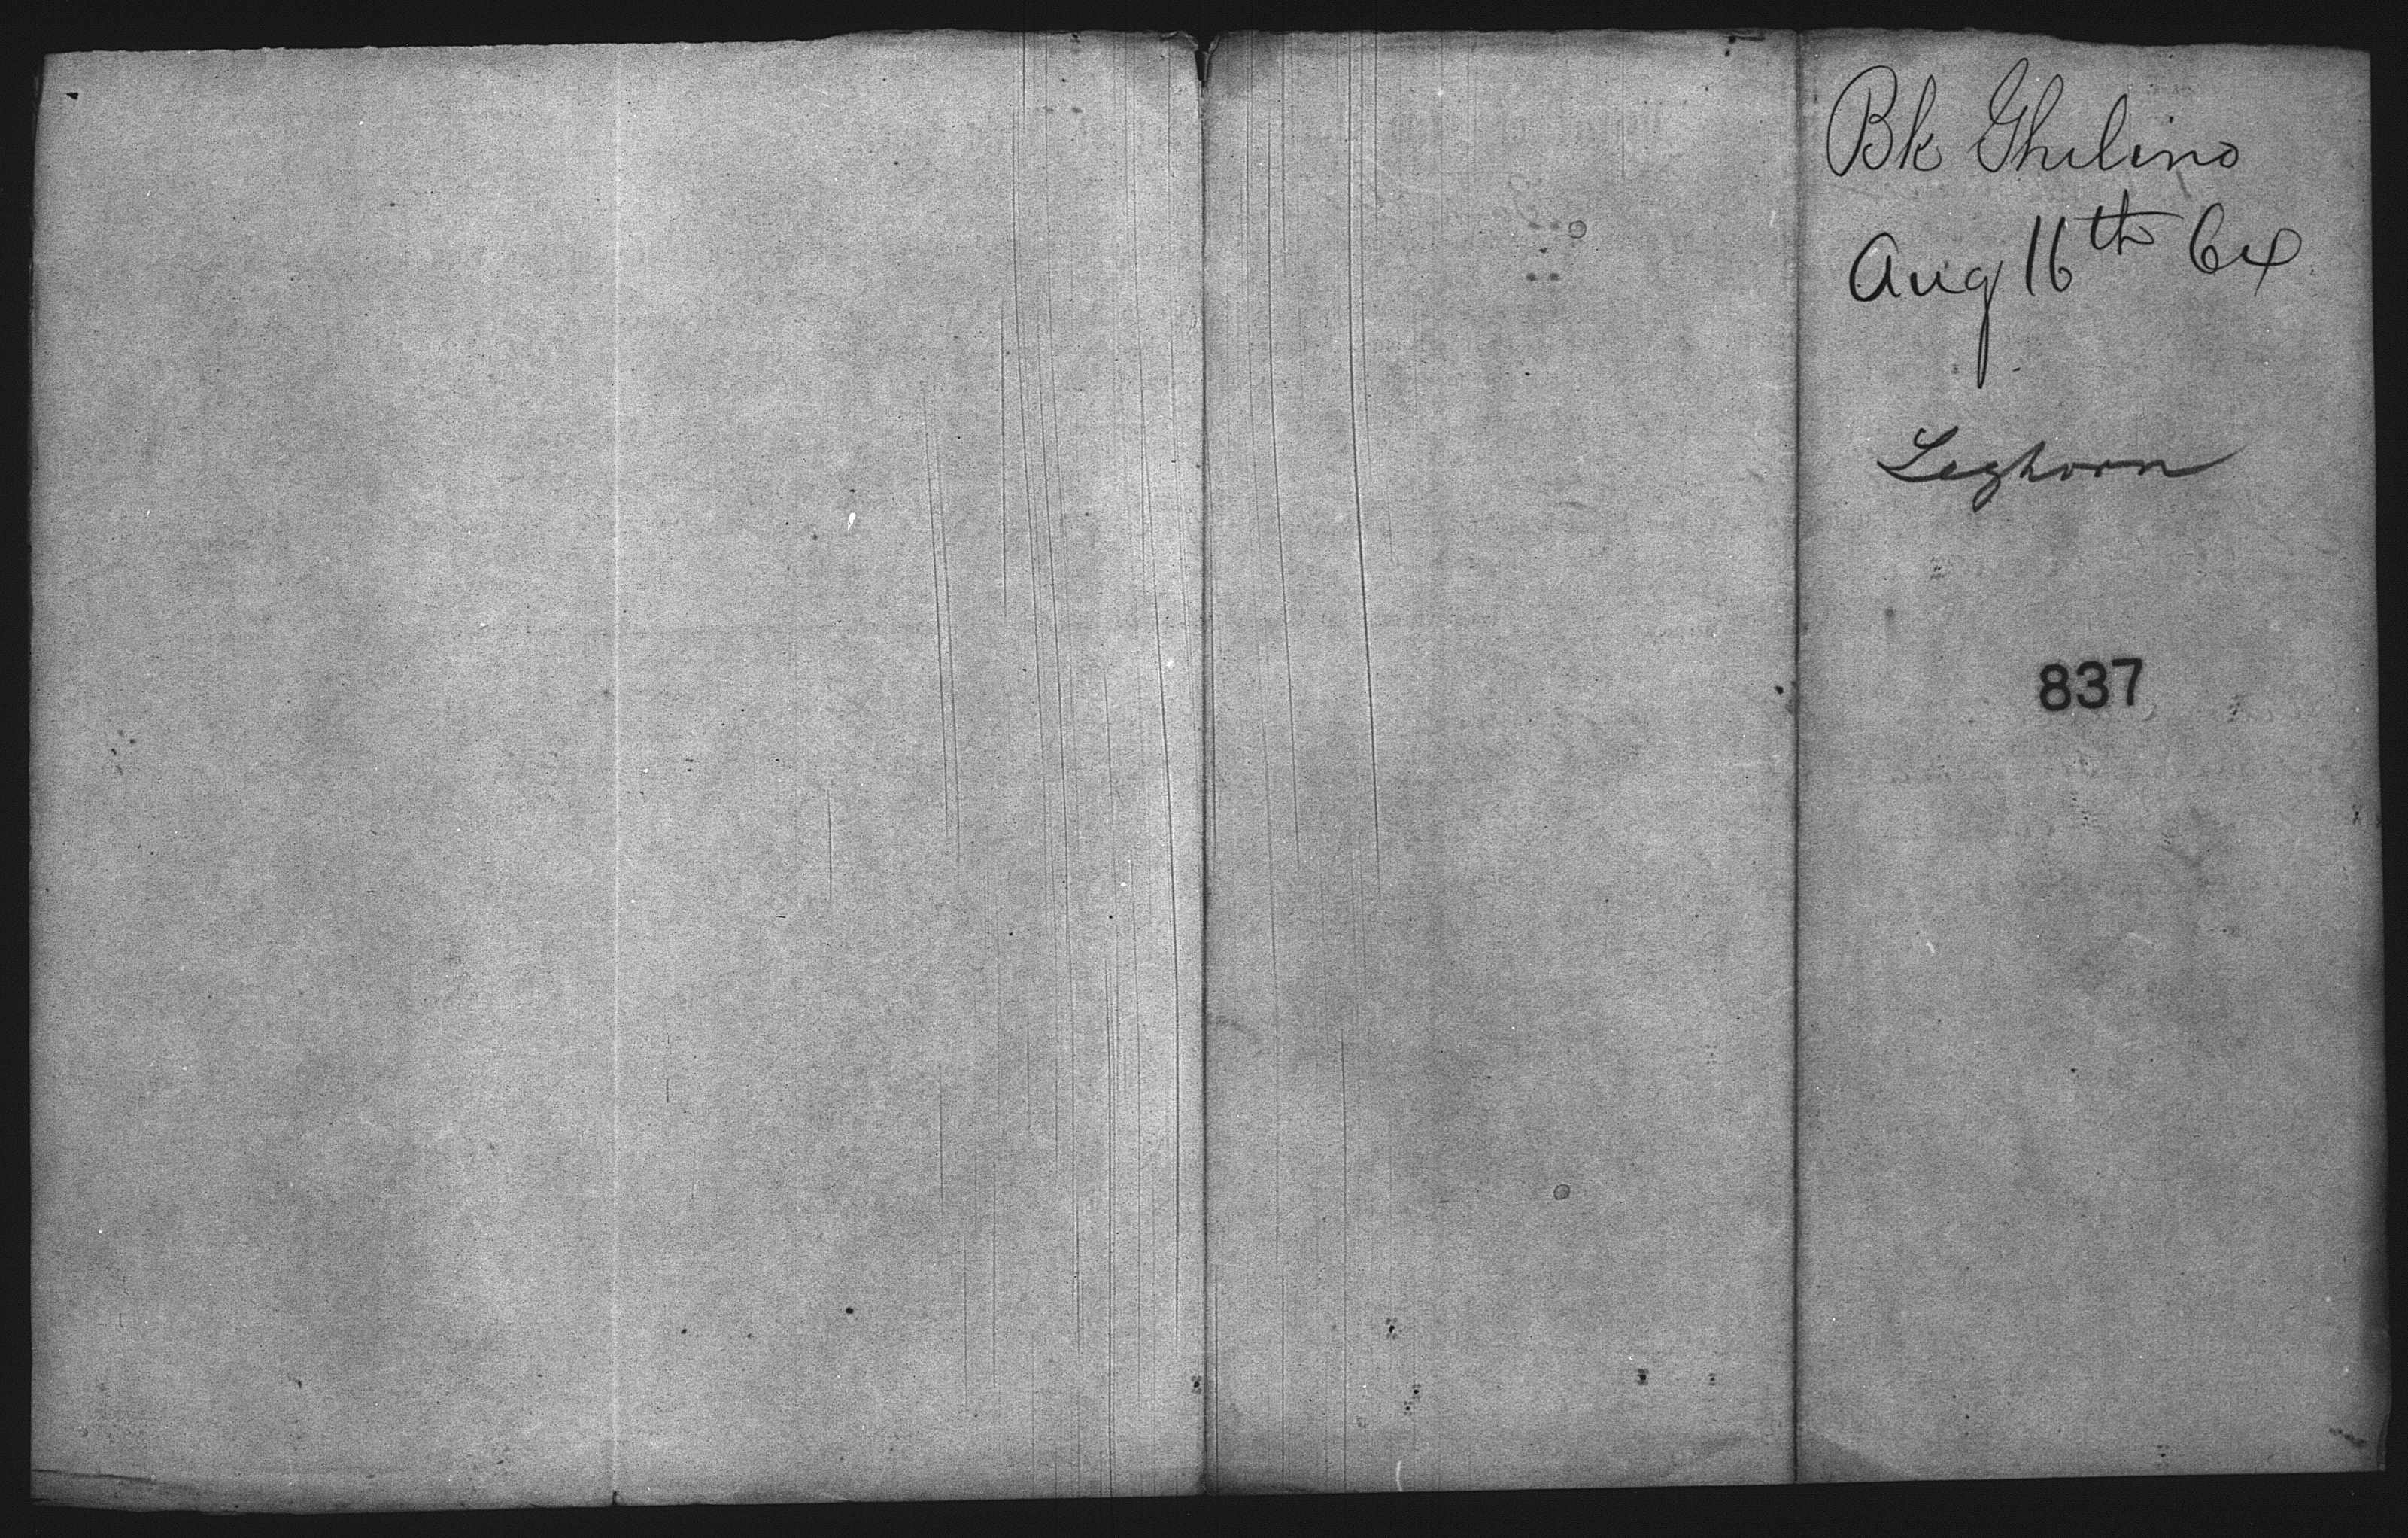 Bk Ghilino
Aug 16th 64
Leghorn
837